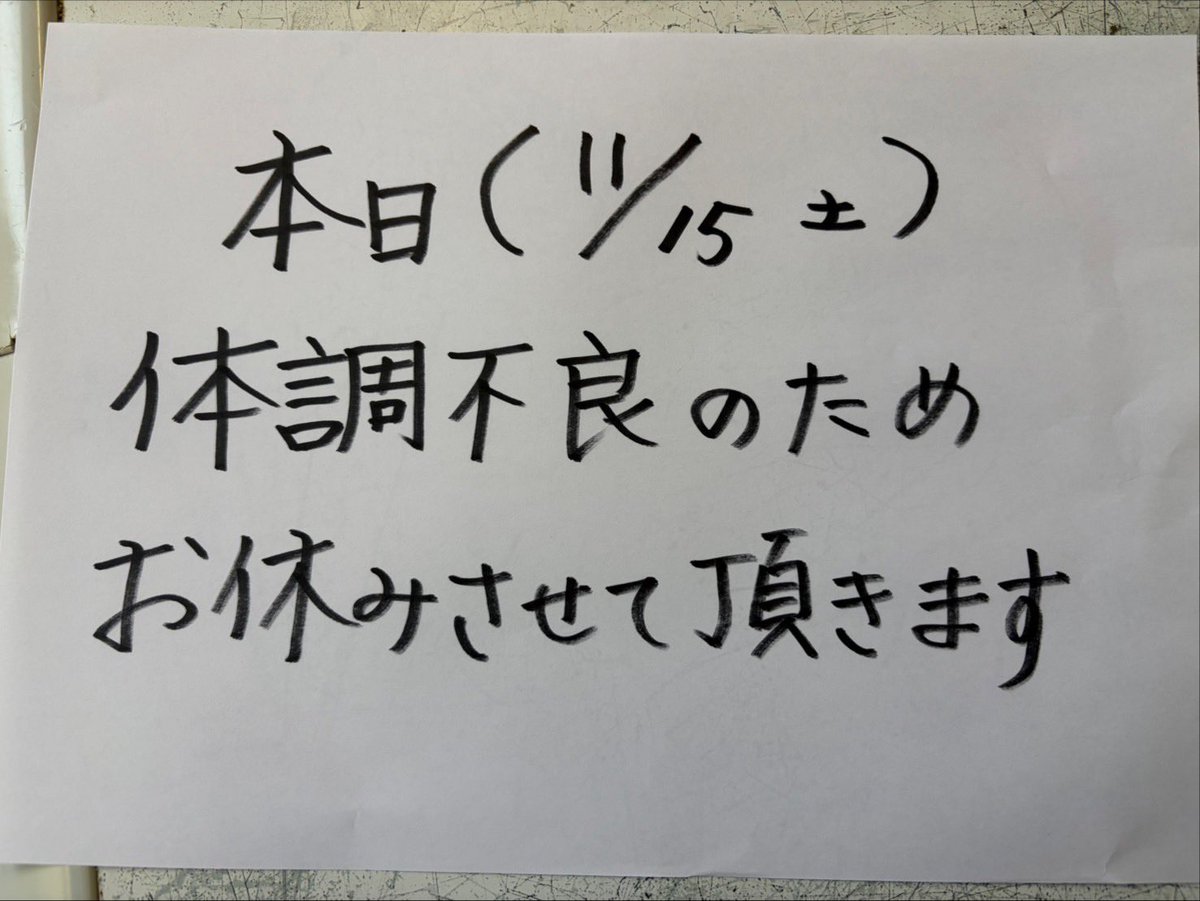 本日(11/15 土)
体調不良のため
お休みさせて頂きます